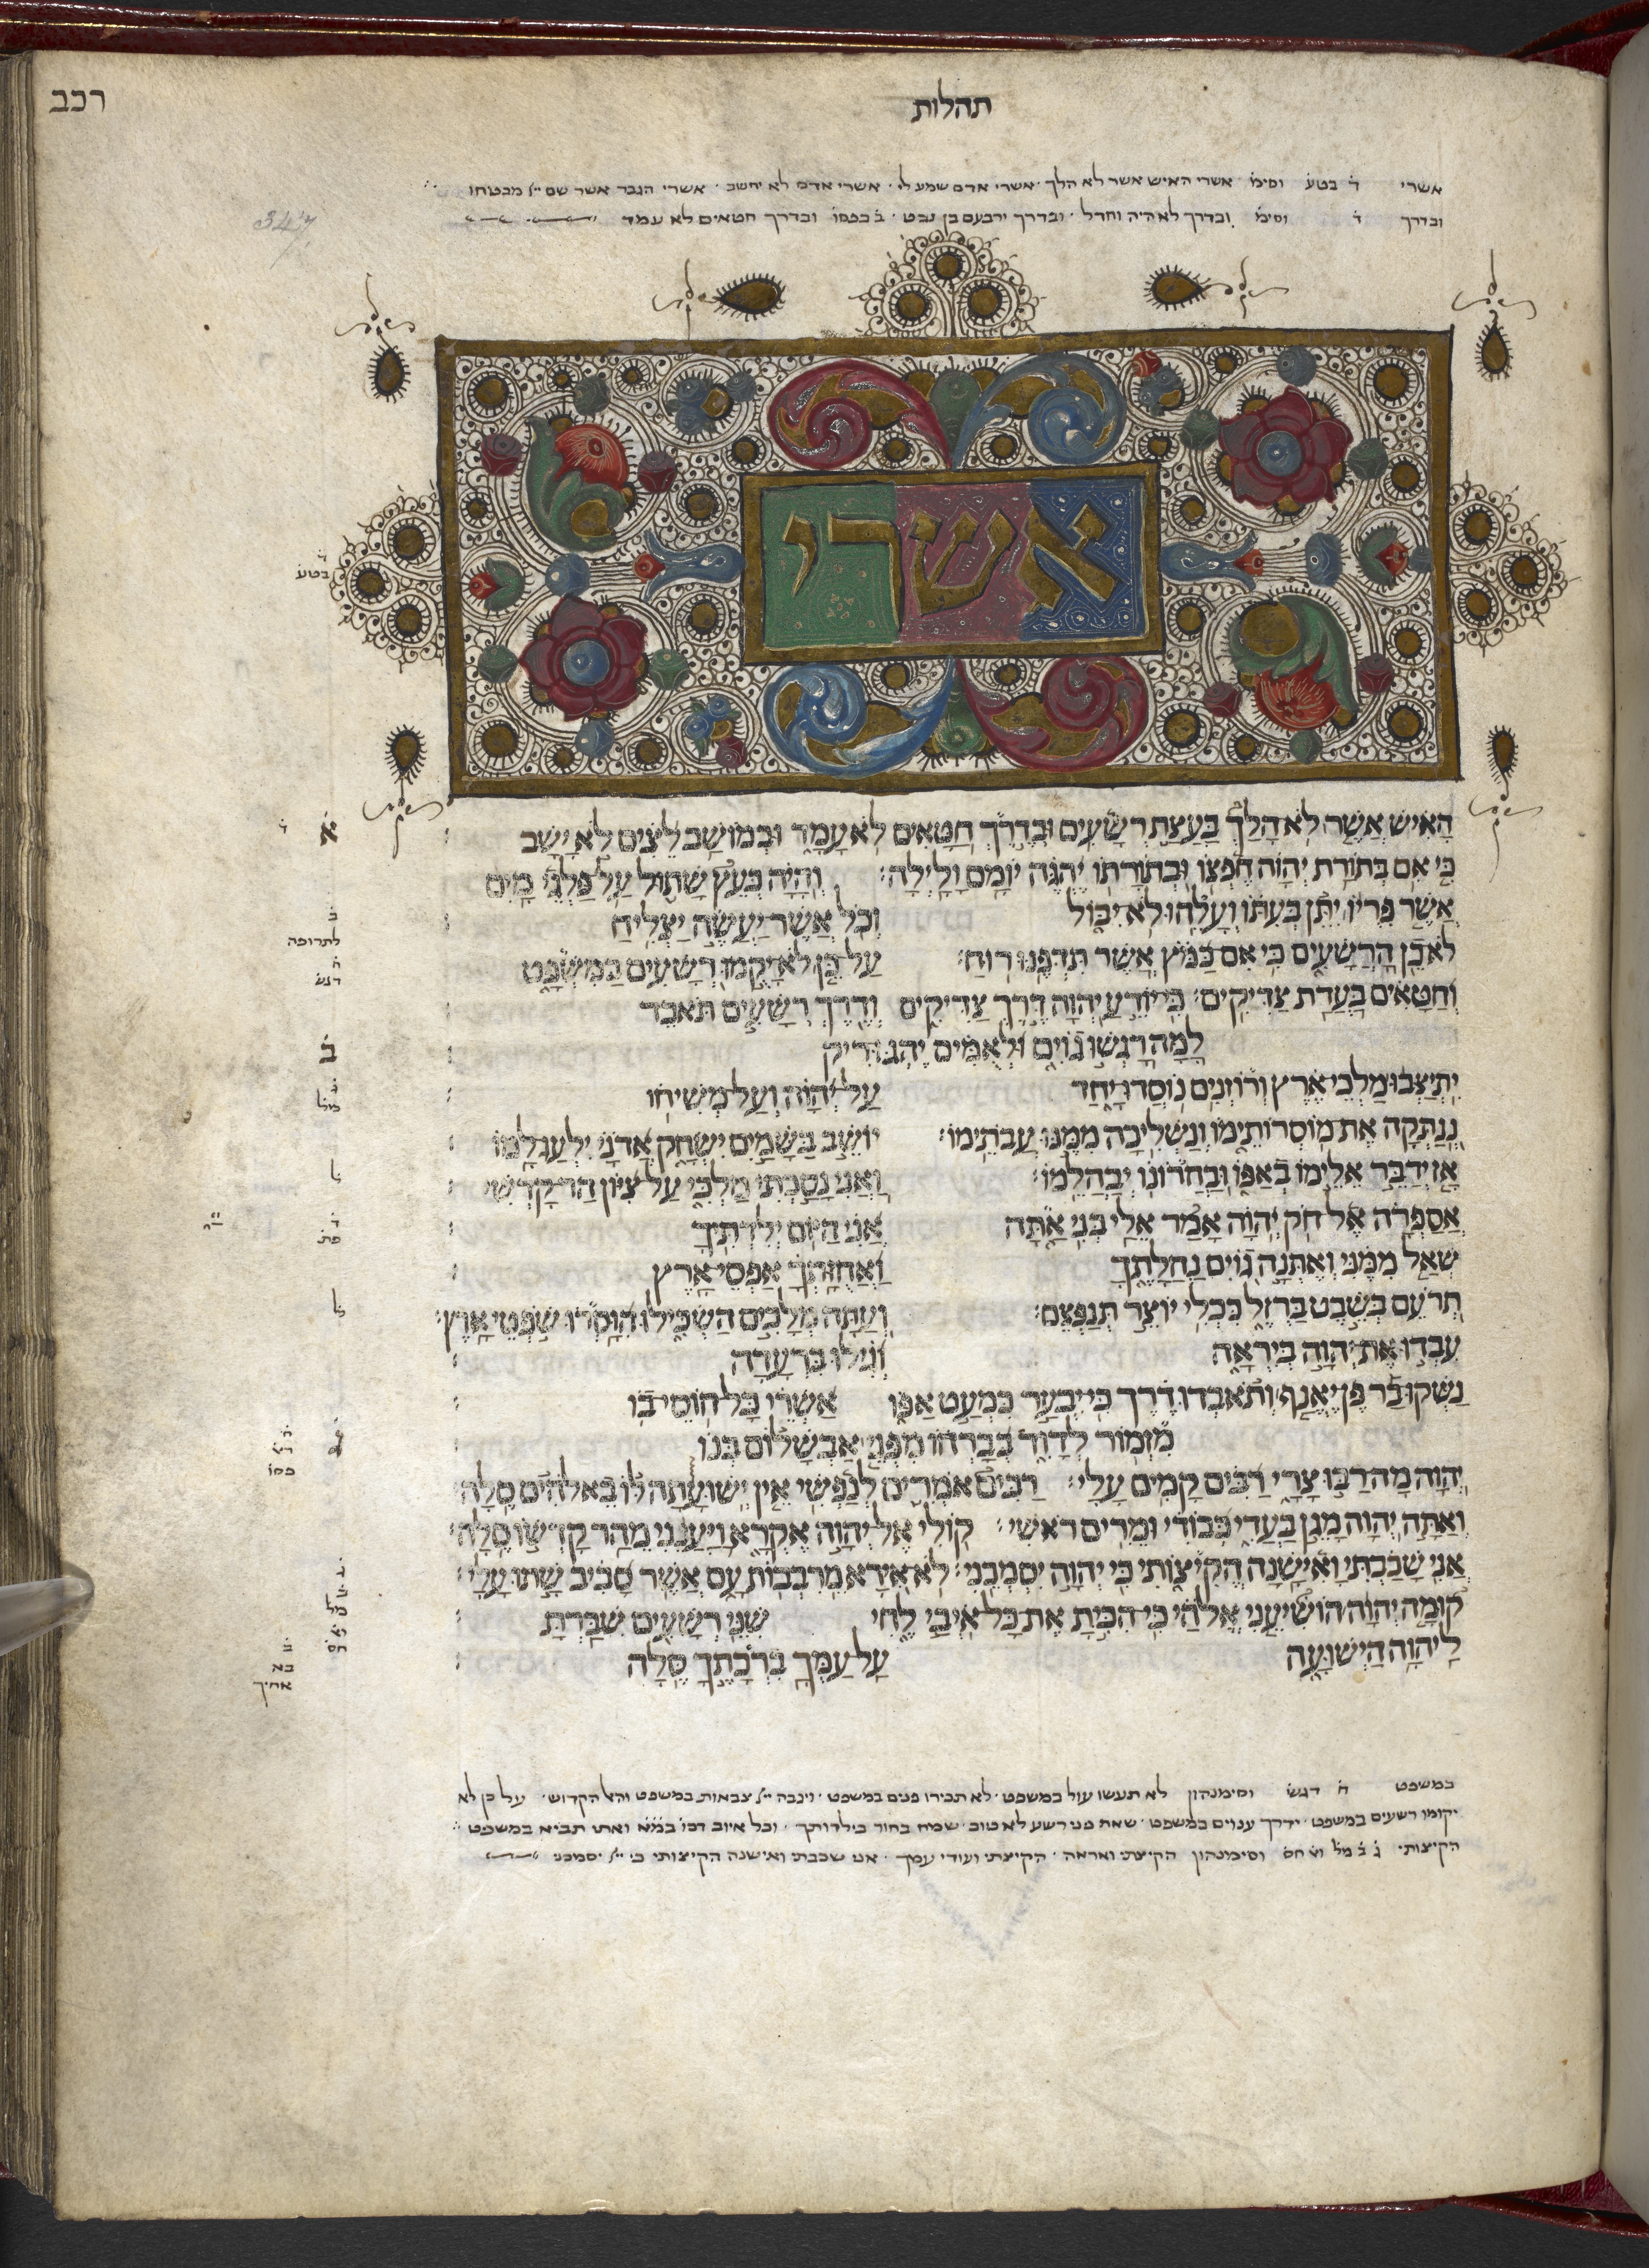 רכב
תהלות
אשרי ד׳ בטע׳ וסימ׳ אשרי האיש אשר לא הלך · אשרי אדם שמע לי · אשרי אדם לא יחשב · אשרי הגבר אשר שם ייי מבטחו
ובדרך ד׳ וסימ׳ ובדרך לא היה וחדל · ובדרך ירבעם בן נבט · ב׳ בפסו׳ ובדרך חטאים לא עמד
347
אשרי
ד׳
בטע׳
הָאִישׁ אֲשֶׁר לֹא הָלַךְ בַּעֲצַת רְשָׁעִים וּבְדֶרֶךְ חַטָּאִים לֹא עָמָד וּבְמוֹשַׁב לֵצִים לֹא יָשָׁב
א
ד׳
כִּי אִם בְּתוֹרַת יְהוָה חֶפְצוֹ וּבְתוֹרָתוֹ יֶהְגֶּה יוֹמָם וָלָיְלָה׃ וְהָיָה כְּעֵץ שָׁתוּל עַל פַּלְגֵי מָיִם
אֲשֶׁר פִּרְיוֹ יִתֵּן בְּעִתּוֹ וְעָלֵהוּ לֹא יִבּוֹל וְכֹל אֲשֶׁר יַעֲשֶׂה יַצְלִיחַ
ב׳
לתרופה
לֹא כֵן הָרְשָׁעִים כִּי אִם כַּמֹּץ אֲשֶׁר תִּדְּפֶנּוּ רוּחַ׃ עַל כֵּן לֹא יָקֻמוּ רְשָׁעִים בַּמִּשְׁפָּט
ה׳
דגש׳
וְחַטָּאִים בַּעֲדַת צַדִּיקִים׃ כִּי יוֹדֵעַ יְהוָה דֶּרֶךְ צַדִּיקִים וְדֶרֶךְ רְשָׁעִים תֹּאבֵד
לָמָּה רָגְשׁוּ גוֹיִם וּלְאֻמִּים יֶהְגּוּ רִיק
ב
יִתְיַצְּבוּ מַלְכֵי אֶרֶץ וְרוֹזְנִים נוֹסְדוּ יָחַד עַל יְהוָה וְעַל מְשִׁיחוֹ
נְנַתְּקָה אֶת מוֹסְרוֹתֵימוֹ וְנַשְׁלִיכָה מִמֶּנּוּ עֲבֹתֵימוֹ׃ יוֹשֵׁב בַּשָּׁמַיִם יִשְׂחָק אֲדֹנָי יִלְעַג לָמוֹ
אָז יְדַבֵּר אֵלֵימוֹ בְאַפּוֹ וּבַחֲרוֹנוֹ יְבַהֲלֵמוֹ׃ וַאֲנִי נָסַכְתִּי מַלְכִּי עַל צִיּוֹן הַר קָדְשִׁי
ל׳
אֲסַפְּרָה אֶל חֹק יְהוָה אָמַר אֵלַי בְּנִי אַתָּה אֲנִי הַיּוֹם יְלִדְתִּיךָ
ד׳
פת׳
שְׁאַל מִמֶּנִּי וְאֶתְּנָה גוֹיִם נַחֲלָתֶךָ וַאֲחֻזָּתְךָ אַפְסֵי אָרֶץ
תְּרֹעֵם בְּשֵׁבֶט בַּרְזֶל כִּכְלִי יוֹצֵר תְּנַפְּצֵם׃ וְעַתָּה מְלָכִים הַשְׂכִּילוּ הִוָּסְרוּ שֹׁפְטֵי אָרֶץ׃
ל׳
עִבְדוּ אֶת יְהוָה בְּיִרְאָה וְגִילוּ בִּרְעָדָה
נַשְּׁקוּ בַר פֶּן יֶאֱנַף וְתֹאבְדוּ דֶרֶךְ כִּי יִבְעַר כִּמְעַט אַפּוֹ אַשְׁרֵי כָּל חוֹסֵי בוֹ
מִזְמוֹר לְדָוִד בְּבָרְחוֹ מִפְּנֵי אַבְשָׁלוֹם בְּנוֹ
ג
יְהוָה מָה רַבּוּ צָרָי רַבִּים קָמִים עָלָי׃ רַבִּים אֹמְרִים לְנַפְשִׁי אֵין יְשׁוּעָתָה לּוֹ בֵאלֹהִים סֶלָה׃
וְאַתָּה יְהוָה מָגֵן בַּעֲדִי כְּבוֹדִי וּמֵרִים רֹאשִׁי׃ קוֹלִי אֶל יְהוָה אֶקְרָא וַיַּעֲנֵנִי מֵהַר קָדְשׁוֹ סֶלָה׃
אֲנִי שָׁכַבְתִּי וָאִישָׁנָה הֱקִיצוֹתִי כִּי יְהוָה יִסְמְכֵנִי׃ לֹא אִירָא מֵרִבְבוֹת עָם אֲשֶׁר סָבִיב שָׁתוּ עָלָי׃
קוּמָה יְהוָה הוֹשִׁיעֵנִי אֱלֹהַי כִּי הִכִּיתָ אֶת כָּל אֹיְבַי לֶחִי שִׁנֵּי רְשָׁעִים שִׁבַּרְתָּ
לַיהוָה הַיְשׁוּעָה עַל עַמְּךָ בִרְכָתֶךָ סֶּלָה
במשפט ה׳ דגש׳ וסימנהון לא תעשו עול במשפט · לא תכירו פנים במשפט · ויגבה ייי צבאות במשפט והאל הקדוש · על כן לא
יקומו רשעים במשפט · ידרך ענוים במשפט · שאת פני רשע לא טוב · שמח בחור בילדותך · וכל איוב דכו׳ במ׳א׳ ואתו תביא במשפט
הקיצותי ג׳ ב׳ מל׳ וא׳ חס׳ וסימנהון הקיצתי ואראה · הקיצתי ועודי עמך · אני שכבתי ואישנה הקיצותי כי ייי יסמכני